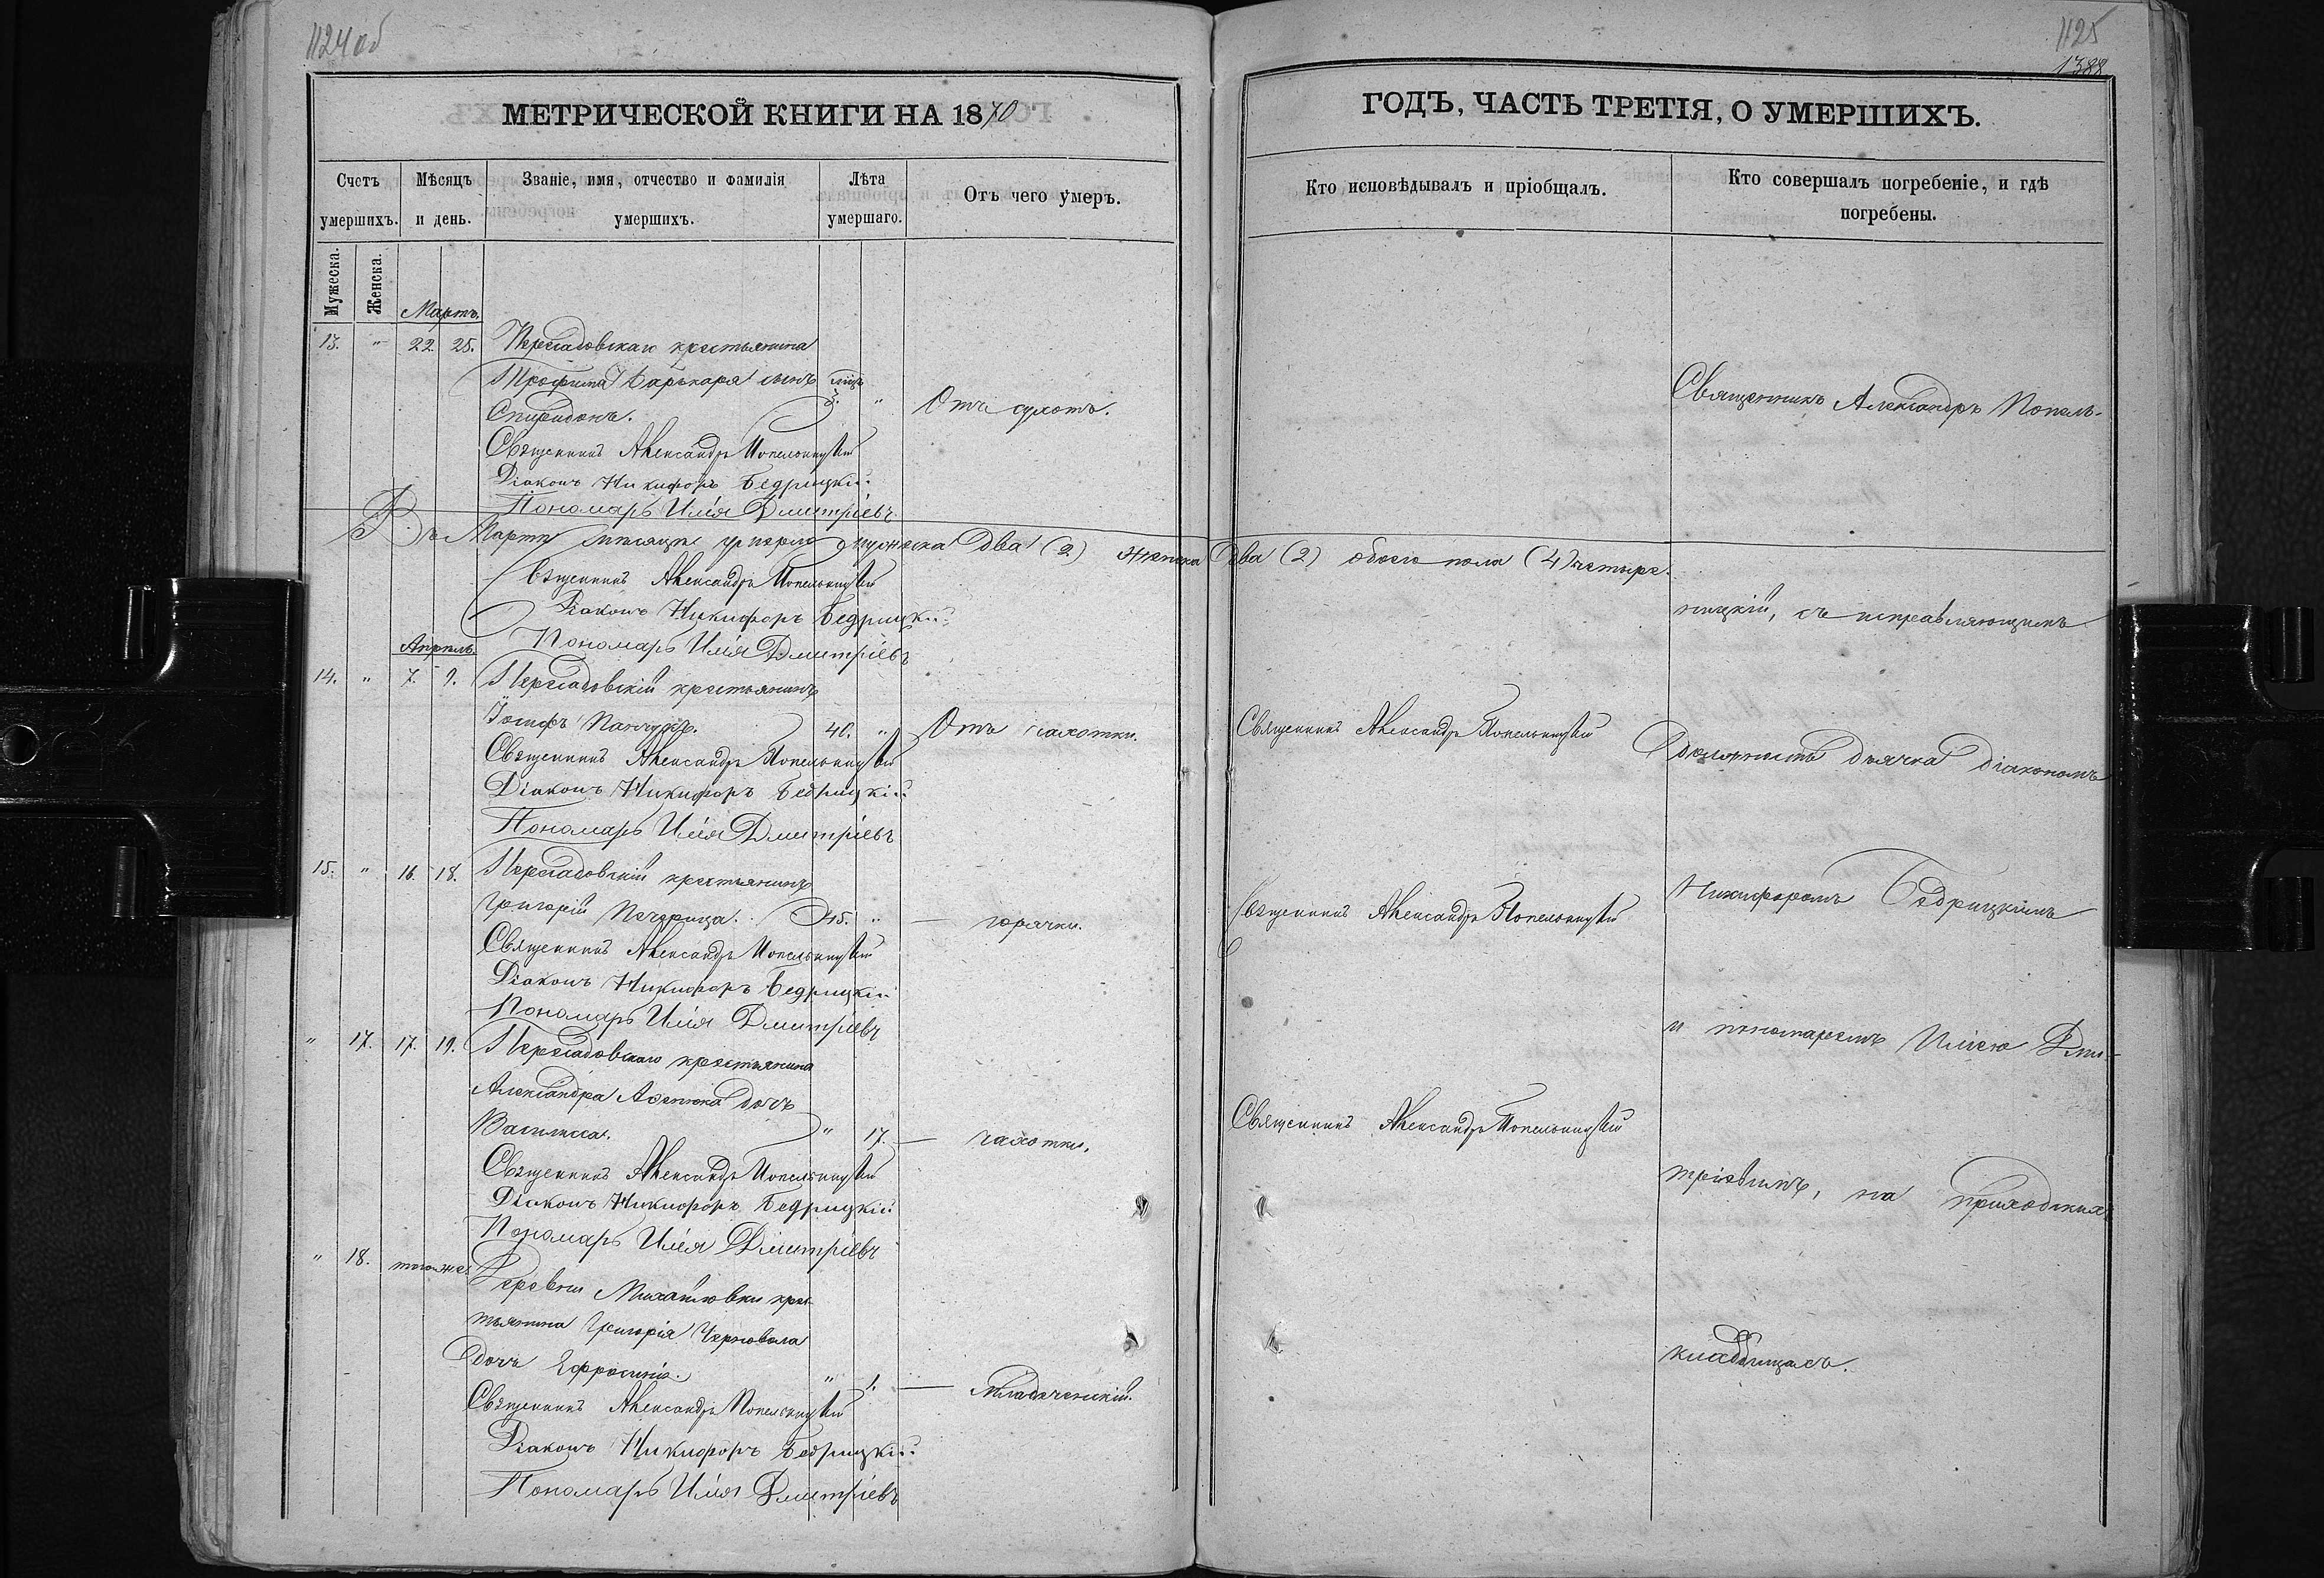 1124 об
МЕТРИЧЕСКОЙ КНИГИ НА 1870
Счетъ умершихъ.
Мѣсяцъ и день.
Званіе, имя, отчество и фамилія умершихъ.
Лѣта умершаго.
Отъ чего умеръ.
Мужеска.
Женска.
Мартъ.
13. " 22. 25. Пересадовскаго крестьянина
Трофима сынъ мѣс. 3. "
Спиридонъ. Отъ сухотъ.
Священникъ Александръ Попельницкій
Діаконъ Никифоръ Бедрицкій
Пономарь Илія Дмитріевъ
Въ Мартѣ мѣсяцѣ умерло мужеска два (2) женска два (2) обоего пола (4) четыре.
Священникъ Александръ Попельницкій
Діаконъ Никифоръ Бедрицкій
Пономарь Илія Дмитріевъ
Апрѣль.
14. " 7. 9. Пересадовскій крестьянинъ
Іосифъ 40. " Отъ чахотки.
Священникъ Александръ Попельницкій
Діаконъ Никифоръ Бедрицкій
Пономарь Илія Дмитріевъ
15. " 16. 18. Пересадовскій крестьянинъ
Григорій Печерица. 45. " — горячки.
Священникъ Александръ Попельницкій
Діаконъ Никифоръ Бедрицкій
Пономарь Илія Дмитріевъ
" 17. 17. 19. Пересадовскаго крестьянина
Александра дочь
Василисса. " 17. — чахотки.
Священникъ Александръ Попельницкій
Діаконъ Никифоръ Бедрицкій
Пономарь Илія Дмитріевъ
" 18. тогоже. Деревни Михайловки крес-
тьянина Григорія Черновола
дочь Ефросинія. " 1. — младенческій.
Священникъ Александръ Попельницкій
Діаконъ Никифоръ Бедрицкій
Пономарь Илія Дмитріевъ
1125
1388
ГОДЪ, ЧАСТЬ ТРЕТІЯ, О УМЕРШИХЪ.
Кто исповѣдывалъ и пріобщалъ.
Кто совершалъ погребеніе, и гдѣ погребены.
Священникъ Александръ Попельницкій
Священникъ Александръ Попельницкій
Священникъ Александръ Попельницкій
Священникъ Александръ Попель-
ницкій, съ исправляющимъ
должность дьячка діакономъ
Никифоромъ Бедрицкимъ
и пономаремъ Иліею Дми-
тріевымъ, на приходскихъ
кладбищахъ.